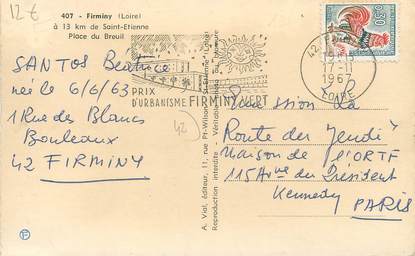 12 €
407 - Firminy (Loire)
à 13 km de Saint-Etienne
Place du Breuil
SANTOS Béatrice
née le 6/6/63
1 Rue des Blancs
Bouleaux
42 FIRMINY
PRIX
D'URBANISME FIRMINY VERT
42
17-11
1967
LOIRE
0,30
A. Vial, éditeur, 11, rue Pt-Wilson, St-Etienne (Loire)
Reproduction interdite - Véritable
Emission La
Route des Jeudi
Maison de l'ORTF
115 Ave du Président
Kennedy PARIS